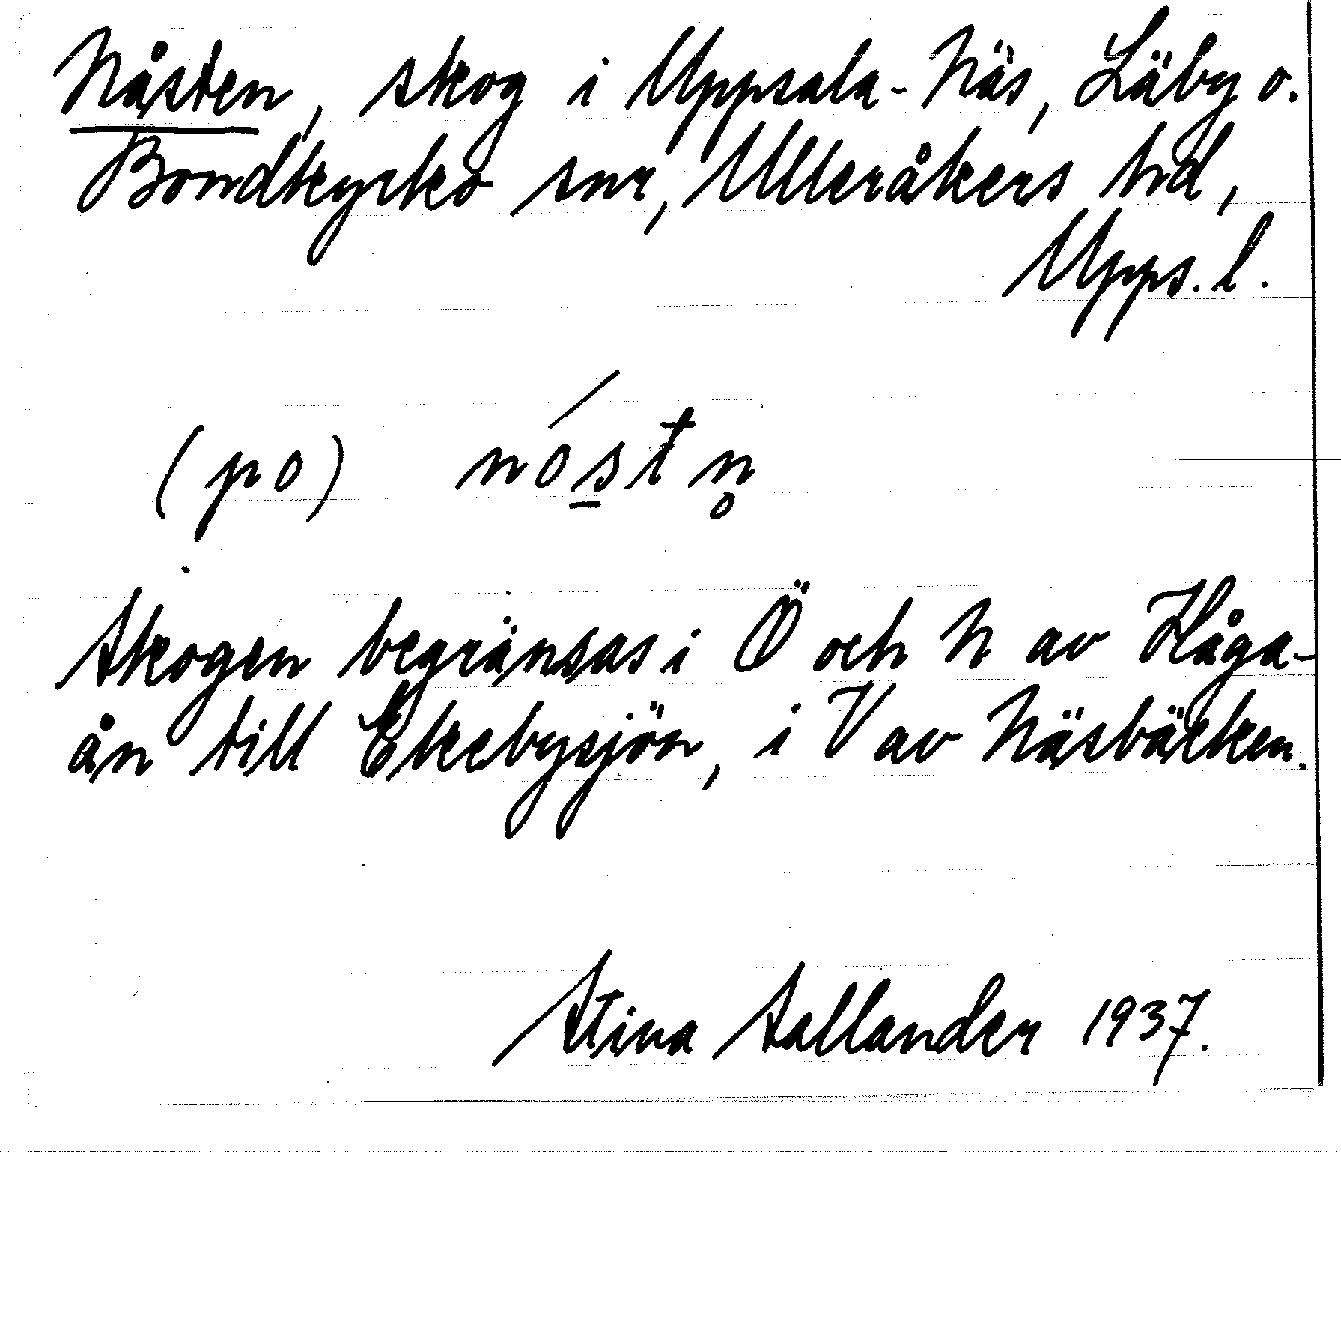 Nåsten, skog i Uppsala-Näs, Läby o.
Bondkyrko snr, Ulleråkers hd,
Upps. l.
(po) nóstn̥
Skogen begränsas i Ö och N av Håga-
ån till Ekebysjön, i V av Näsbäcken.
Stina Sallander 1937.